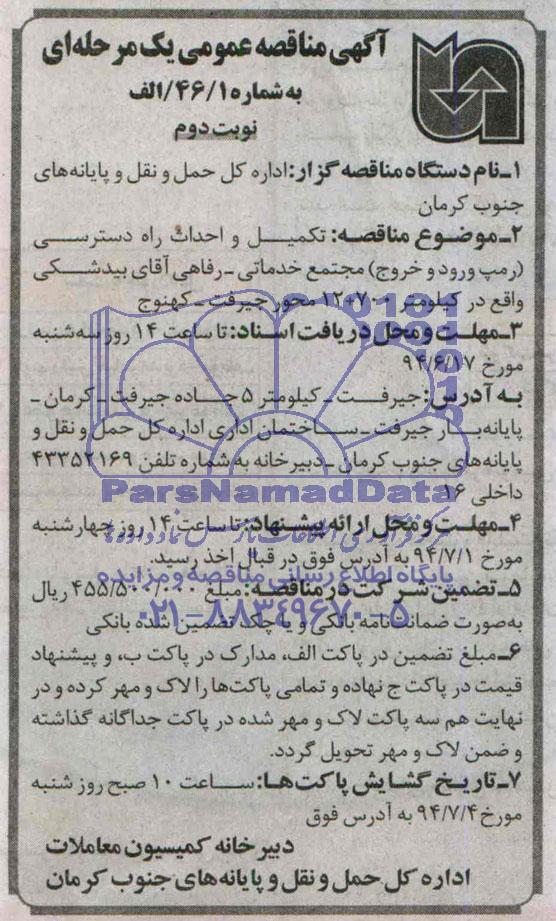 آگهی مناقصه عمومی یک مرحله‌ای
به شماره ۴۶/۱/الف
نوبت دوم
۱ـ نام دستگاه مناقصه گزار: اداره کل حمل و نقل و پایانه‌های
جنوب کرمان
۲ـ موضوع مناقصه: تکمیل و احداث راه دسترسی
(رمپ ورود و خروج) مجتمع خدماتی ـ رفاهی آقای بیدشکی
واقع در کیلومتر ۷۰۰+۱۲ محور جیرفت ـ کهنوج
۳ـ مهلت و محل دریافت اسناد: تا ساعت ۱۴ روز سه‌شنبه
مورخ ۹۴/۶/۱۷
به آدرس: جیرفت ـ کیلومتر ۵ جاده جیرفت ـ کرمان ـ
پایانه بار جیرفت ـ ساختمان اداری اداره کل حمل و نقل و
پایانه‌های جنوب کرمان ـ دبیرخانه به شماره تلفن ۴۳۳۵۲۱۶۹
داخلی ۱۶
ParsNamadData
۴ـ مهلت و محل ارائه پیشنهاد: تا ساعت ۱۴ روز چهارشنبه
مورخ ۹۴/۷/۱ به آدرس فوق در قبال اخذ رسید.
پایگاه اطلاع رسانی مناقصه و مزایده
۵ـ تضمین شرکت در مناقصه: مبلغ ۴۵۵/۵۰۰/۰۰۰ ریال
۰۲۱-۸۸۳۴۹۶۷۰-۵
به‌صورت ضمانت‌نامه بانکی و یا چک تضمین شده بانکی
۶ـ مبلغ تضمین در پاکت الف، مدارک در پاکت ب، و پیشنهاد
قیمت در پاکت ج نهاده و تمامی پاکت‌ها را لاک و مهر کرده و در
نهایت هم سه پاکت لاک و مهر شده در پاکت جداگانه گذاشته
و ضمن لاک و مهر تحویل گردد.
۷ـ تاریخ گشایش پاکت‌ها: ساعت ۱۰ صبح روز شنبه
مورخ ۹۴/۷/۴ به آدرس فوق
دبیرخانه کمیسیون معاملات
اداره کل حمل و نقل و پایانه‌های جنوب کرمان